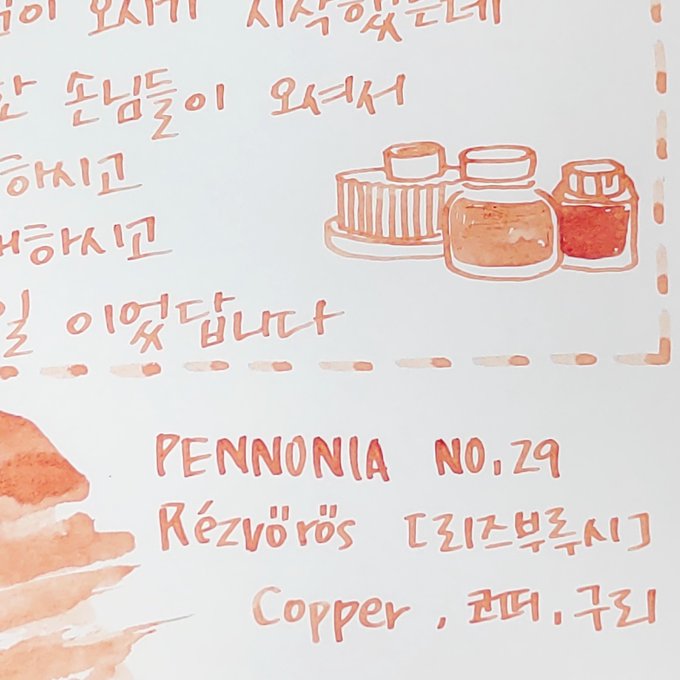 오시기 시작했는데
손님들이 오셔서
하시고
하시고
일 이었답니다
PENNONIA NO.29
Rézvörös [리즈부루시]
Copper, 코퍼, 구리